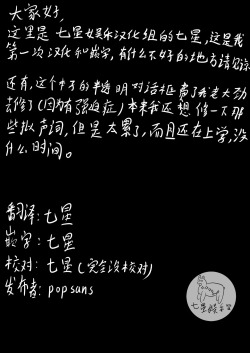 大家好,
这里是七星娱乐汉化组的七星,这是我
第一次汉化和嵌字,有什么不好的地方请见谅
还有,这个本子的半透明对话框费了我老大劲
去修了(因为有强迫症)本来我还想修一下那
些拟声词,但是太累了,而且还在上学,没
什么时间。
翻译:七星
嵌字:七星
校对:七星(完全没校对)
发布者:popsans